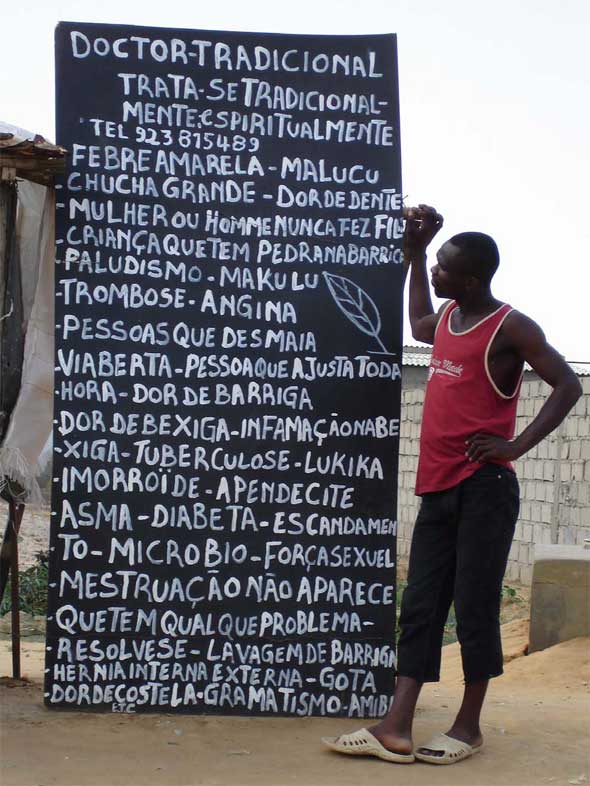 DOCTOR-TRADICIONAL
TRATA-SE TRADICIONAL-
MENTE. e ESPIRITUALMENTE
TEL 923 815489
-FEBRE AMARELA - MALUCU
-CHUCHA GRANDE - DOR DE DENTE
-MULHER OU HOMME NUNCA FEZ FIL
-CRIANÇA QUE TEM PEDRA NA BARRIG
-PALUDISMO - MAKULU
-TROMBOSE - ANGINA
-PESSOAS QUE DESMAIA
-VIABERTA - PESSOA QUE AJUSTA TODA
-HORA - DOR DE BARRIGA
-DOR DE BEXIGA - INFAMAÇÃO NA BE
-XIGA - TUBERCULOSE - LUKIKA
-IMORROÏDE - APENDECITE
-ASMA - DIABETA - ESCANDAMEN
-TO - MICROBIO - FORÇA SEXUEL
-MESTRUAÇÃO NÃO APARECE
-QUE TEM QUAL QUE PROBLEMA -
-RESOLVESE - LAVAGEM DE BARRIGA
-HERNIA INTERNA EXTERNA - GOTA
-DOR DE COSTELA - GRAMATISMO - AMIBI
ETC